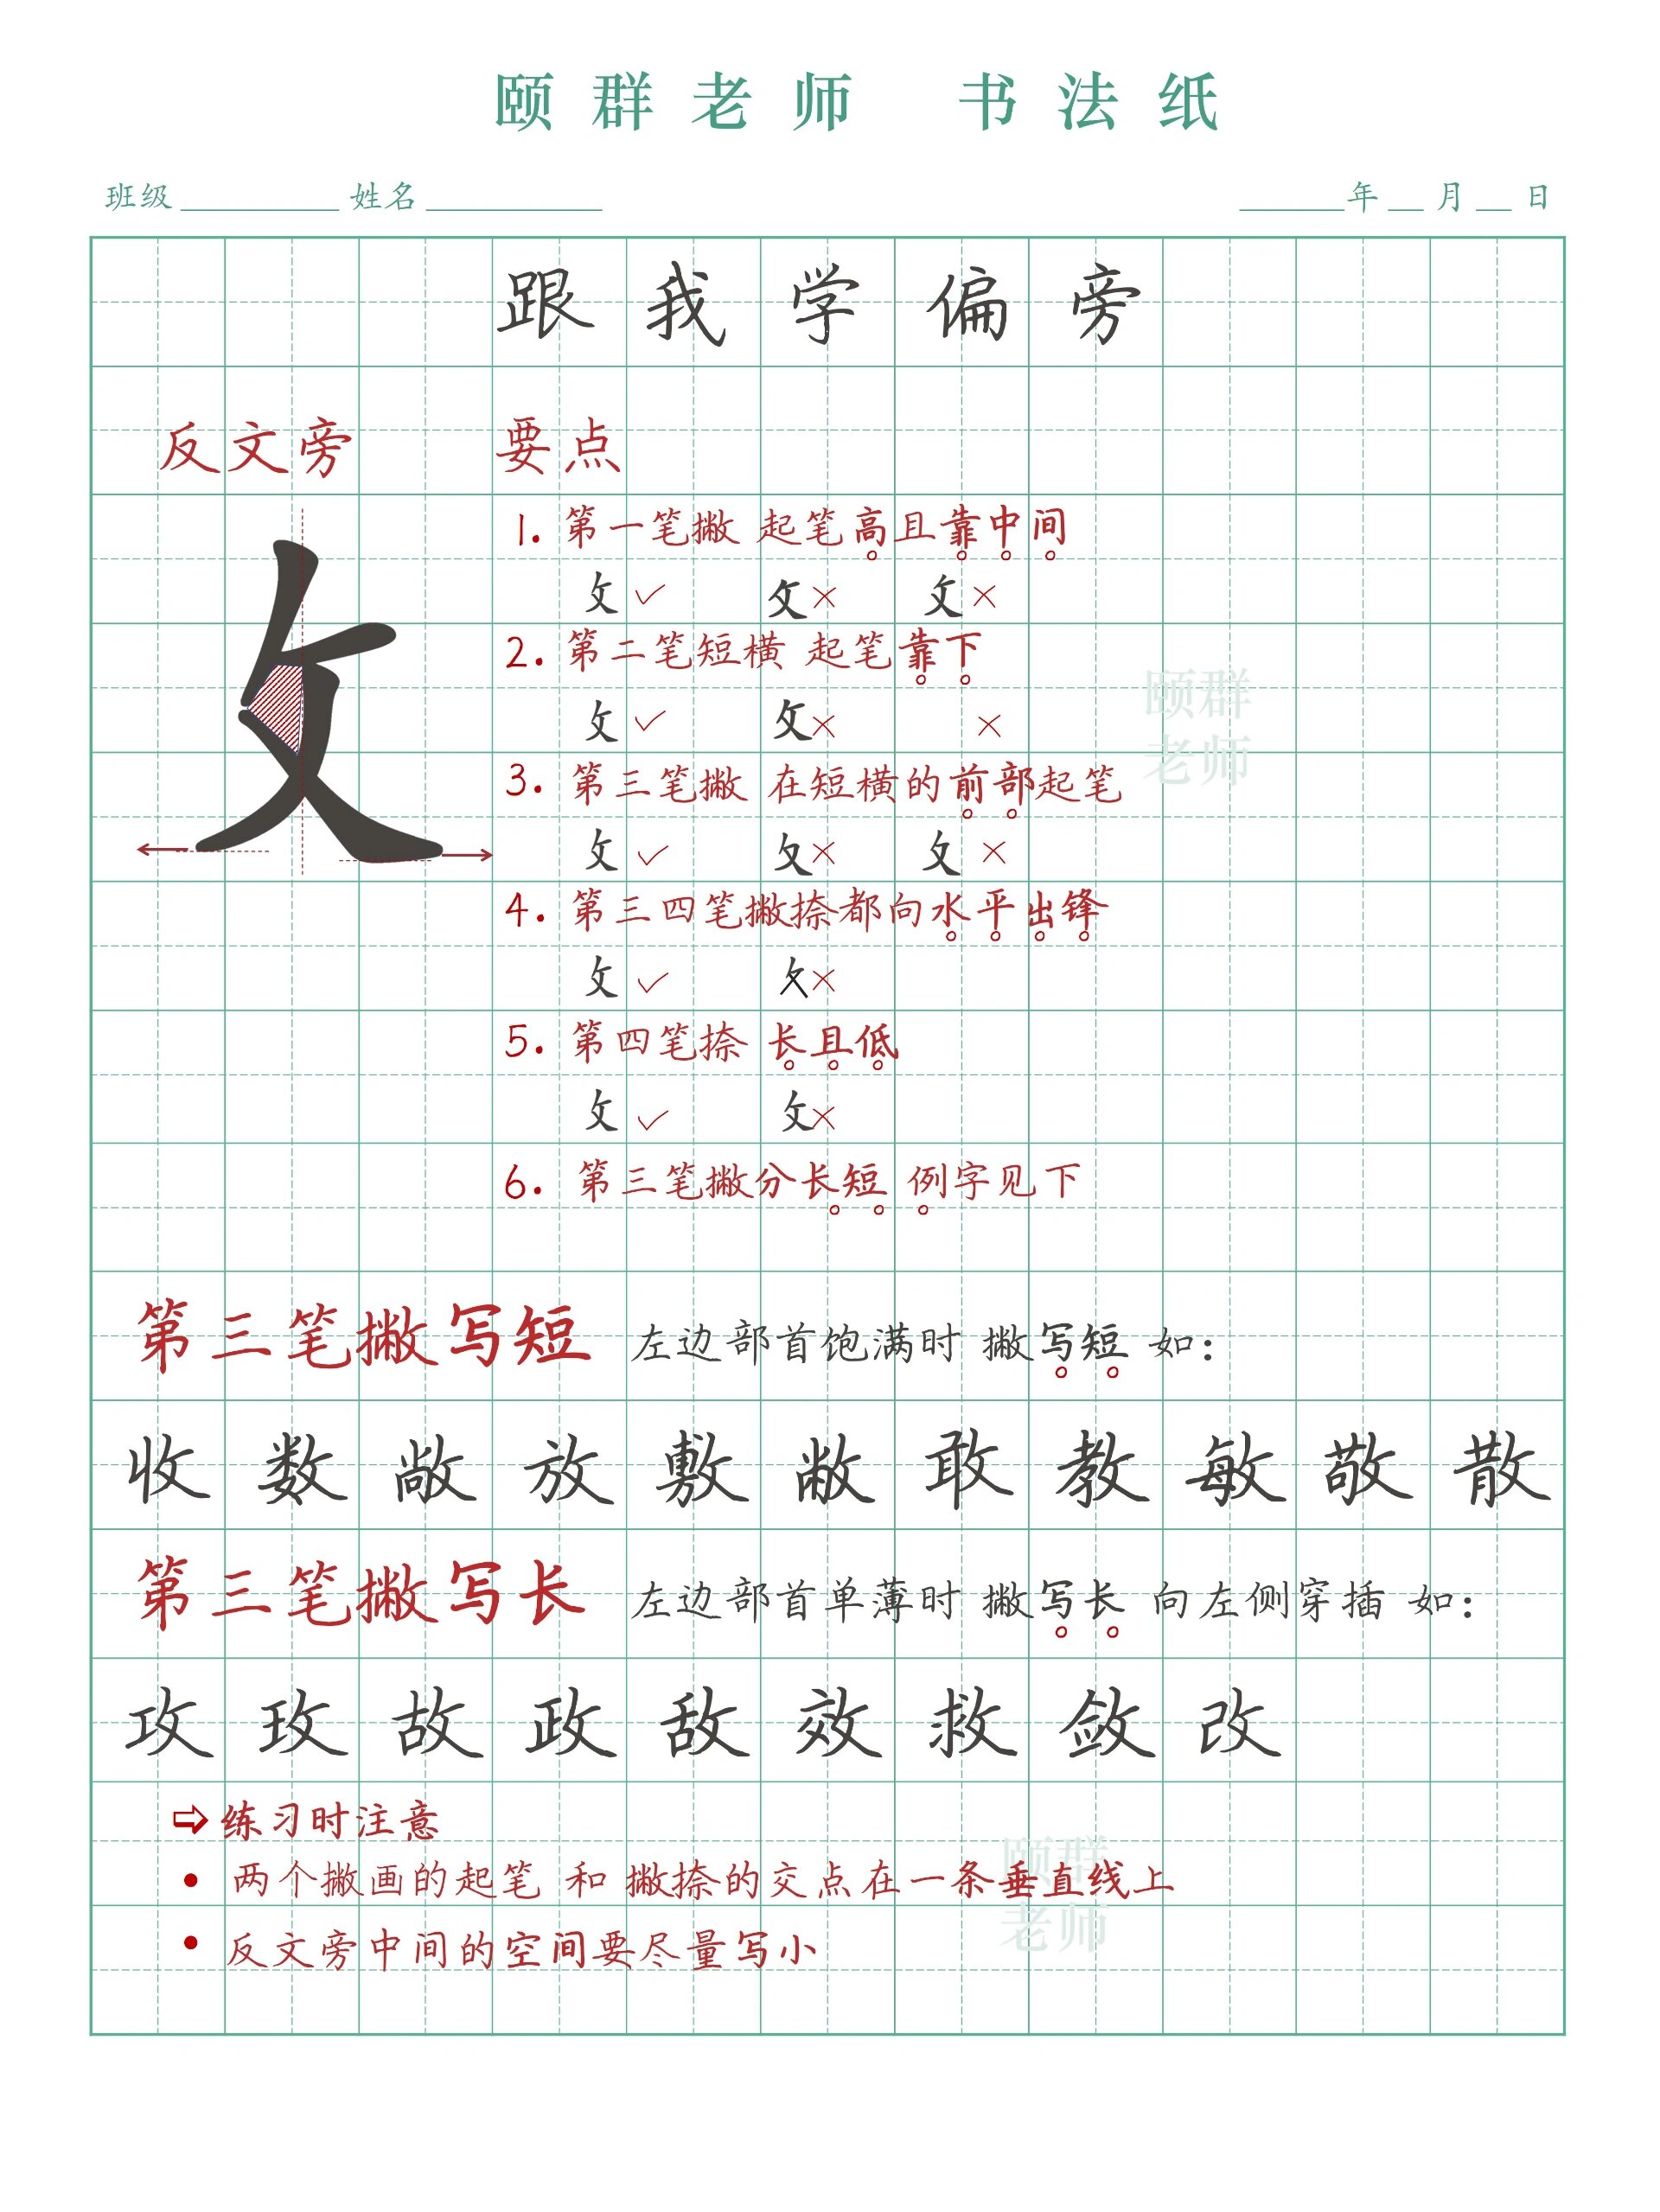 颐群老师 书法纸
班级 姓名 年 月 日
跟我学偏旁
反文旁 要点
1. 第一笔撇 起笔高且靠中间
攵 ✓ 攵 × 攵 ×
2. 第二笔短横 起笔靠下
攵 ✓ 攵 × ×
颐群
老师
3. 第三笔撇 在短横的前部起笔
攵 ✓ 攵 × 攵 ×
4. 第三四笔撇捺都向水平出锋
攵 ✓ 攵 ×
5. 第四笔捺 长且低
攵 ✓ 攵 ×
6. 第三笔撇分长短 例字见下
攵
第三笔撇写短 左边部首饱满时 撇写短 如:
收 数 敞 放 敷 敝 敢 教 敏 敬 散
第三笔撇写长 左边部首单薄时 撇写长 向左侧穿插 如:
攻 玫 故 政 敌 效 救 敛 改
⇨ 练习时注意
• 两个撇画的起笔 和 撇捺的交点在一条垂直线上
• 反文旁中间的空间要尽量写小
颐群
老师